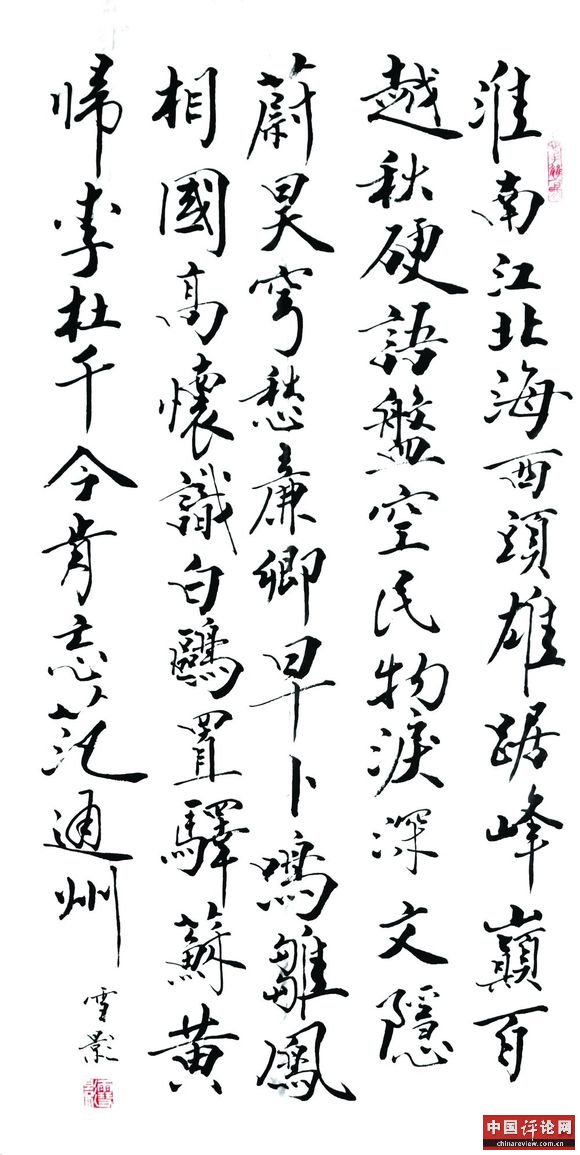 淮南江北海西頭雄踞峰巔百
越秋硬語盤空民物淚深文隱
蔚昊穹愁廉卿早卜鳴雛鳳
相國高懷識白鷗置驛蘇黃
帰李杜千今肯忘范通州
雪影
中国评论网
chinareview.com.cn